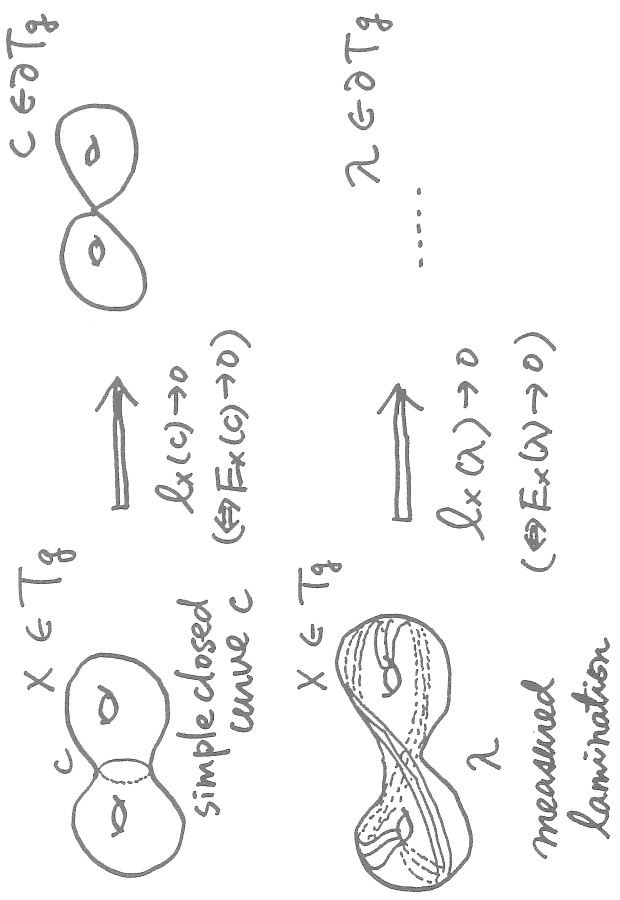 X ∈ Tg
c
simple closed
curve c
lx(c)→0
(⇔Ex(c)→0)
c ∈ ∂Tg
X ∈ Tg
λ
measured
lamination
lx(λ)→0
(⇔Ex(λ)→0)
λ ∈ ∂Tg
......